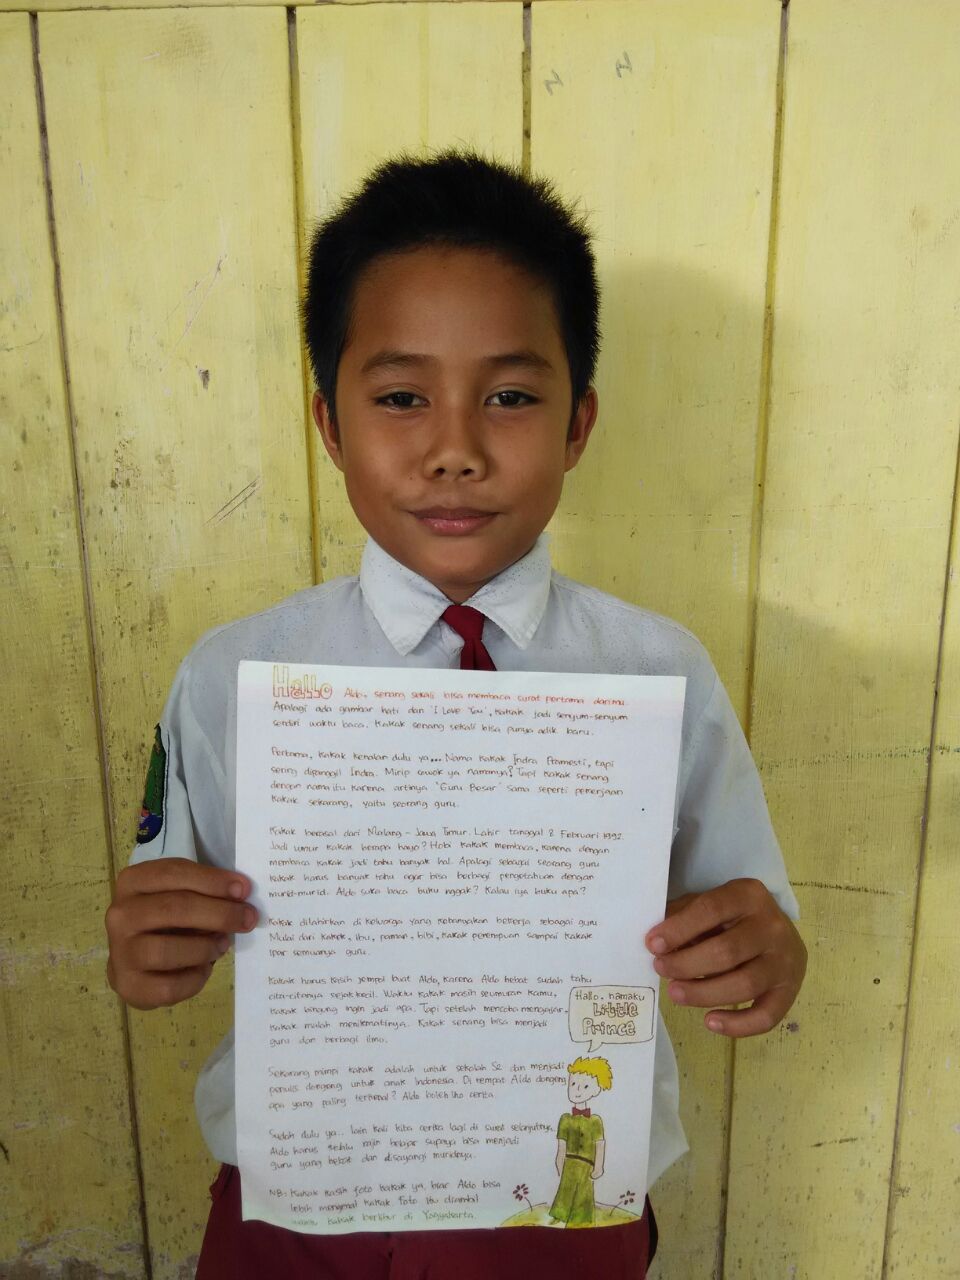 Hallo Aldo, senang sekali bisa membaca surat pertama darimu.
Apalagi ada gambar hati dan 'I Love You', kakak jadi senyum-senyum
sendiri waktu baca. Kakak senang sekali bisa punya adik baru.
Pertama, kakak kenalan dulu ya... Nama kakak Indra Pramesti, tapi
sering dipanggil Indra. Mirip cowok ya namanya? Tapi kakak senang
dengan nama itu karena artinya "Guru Besar" sama seperti pekerjaan
kakak sekarang, yaitu seorang guru.
Kakak berasal dari Malang - Jawa Timur. Lahir tanggal 8 Februari 1992.
Jadi umur kakak berapa hayo? Hobi kakak membaca, karena dengan
membaca kakak jadi tahu banyak hal. Apalagi sebagai seorang guru
kakak harus banyak tahu agar bisa berbagi pengetahuan dengan
murid-murid. Aldo suka baca buku nggak? Kalau iya buku apa?
Kakak dilahirkan di keluarga yang kebanyakan bekerja sebagai guru
Mulai dari kakek, ibu, paman, bibi, kakak perempuan sampai kakak
ipar semuanya guru.
Kakak harus kasih jempol buat Aldo, karena Aldo hebat sudah tahu
cita-citanya sejak kecil. Waktu kakak masih seumuran kamu,
kakak bingung ingin jadi apa. Tapi setelah mencoba mengajar,
kakak malah menikmatinya. Kakak senang bisa menjadi
guru dan berbagi ilmu.
Hallo, namaku
Little
Prince
Sekarang mimpi kakak adalah untuk sekolah S2 dan menjadi
penulis dongeng untuk anak Indonesia. Di tempat Aldo dongeng
apa yang paling terkenal? Aldo boleh lho cerita.
Sudah dulu ya.. lain kali kita cerita lagi di surat selanjutnya.
Aldo harus selalu rajin belajar supaya bisa menjadi
guru yang hebat dan disayangi muridnya.
NB: Kakak kasih foto kakak ya, biar Aldo bisa
lebih mengenal kakak. Foto itu diambil
waktu kakak berlibur di Yogyakarta.